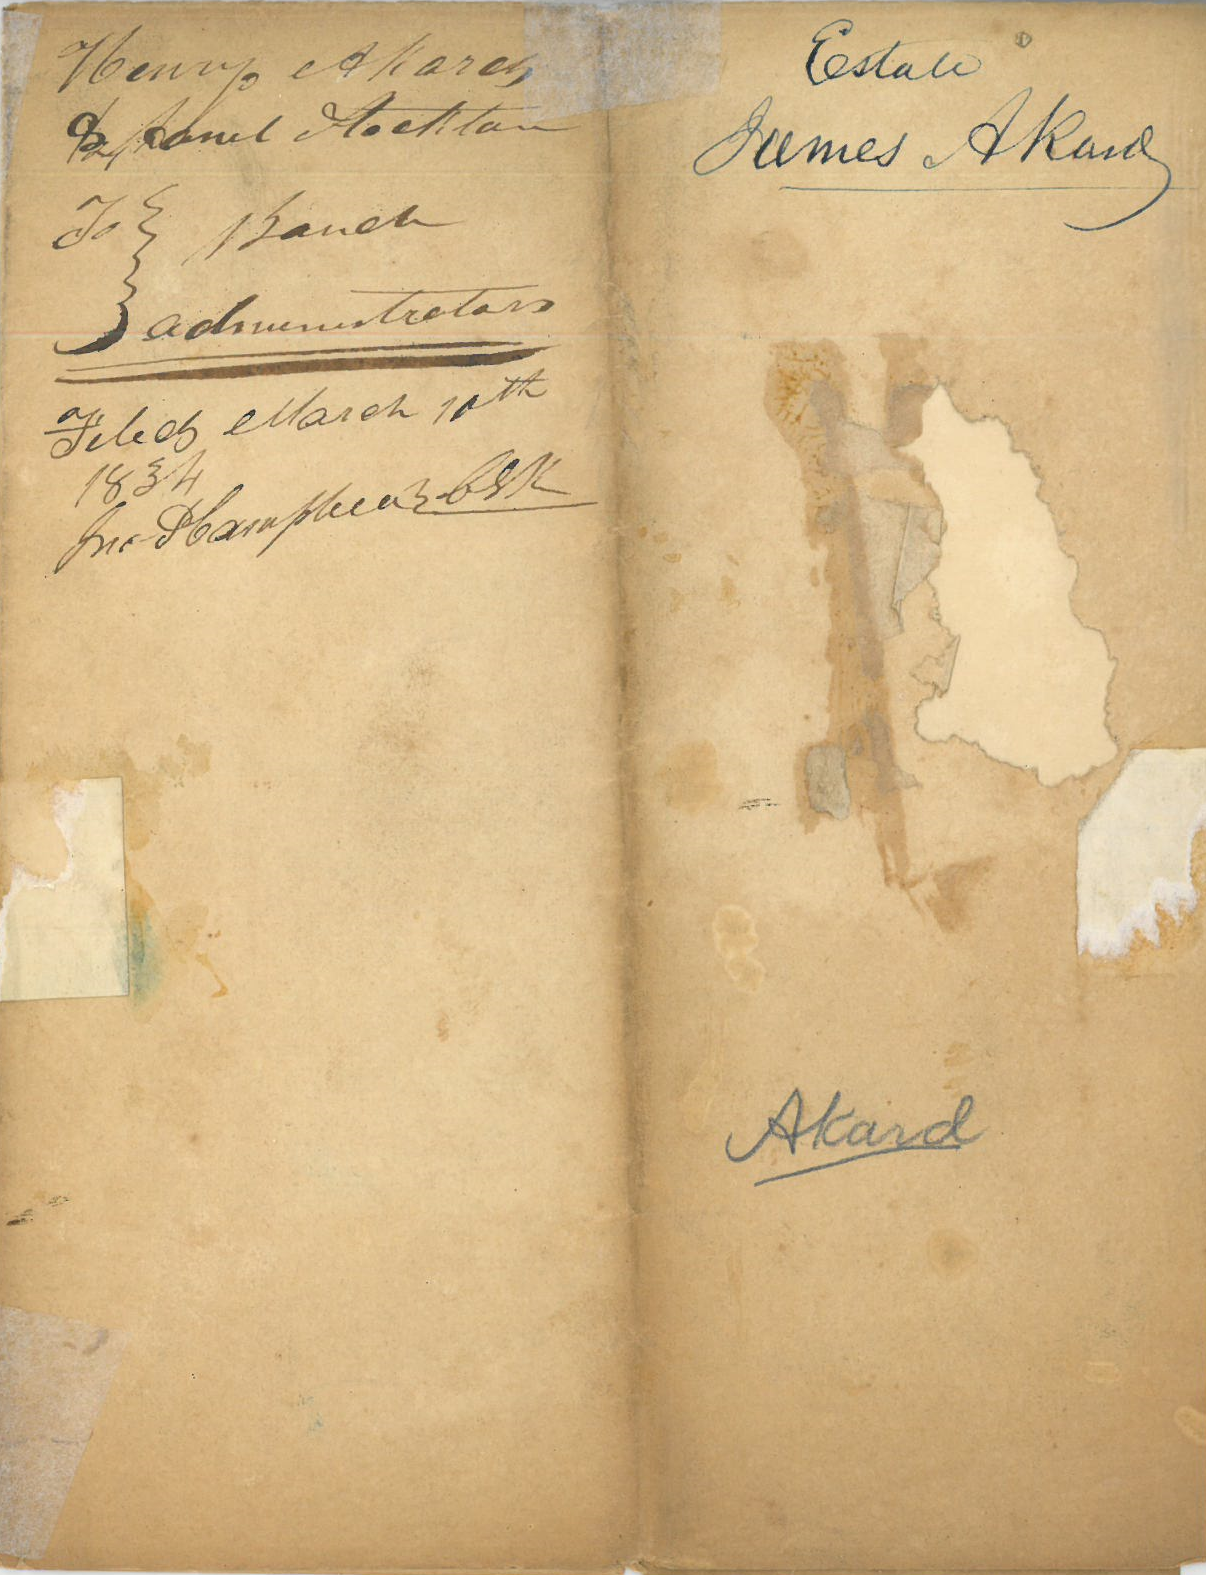 Henry Akard
& Stockton
To
administrators
Filed March 10th
1834
Jno Campbell Clk
Estate
James Akard
Akard